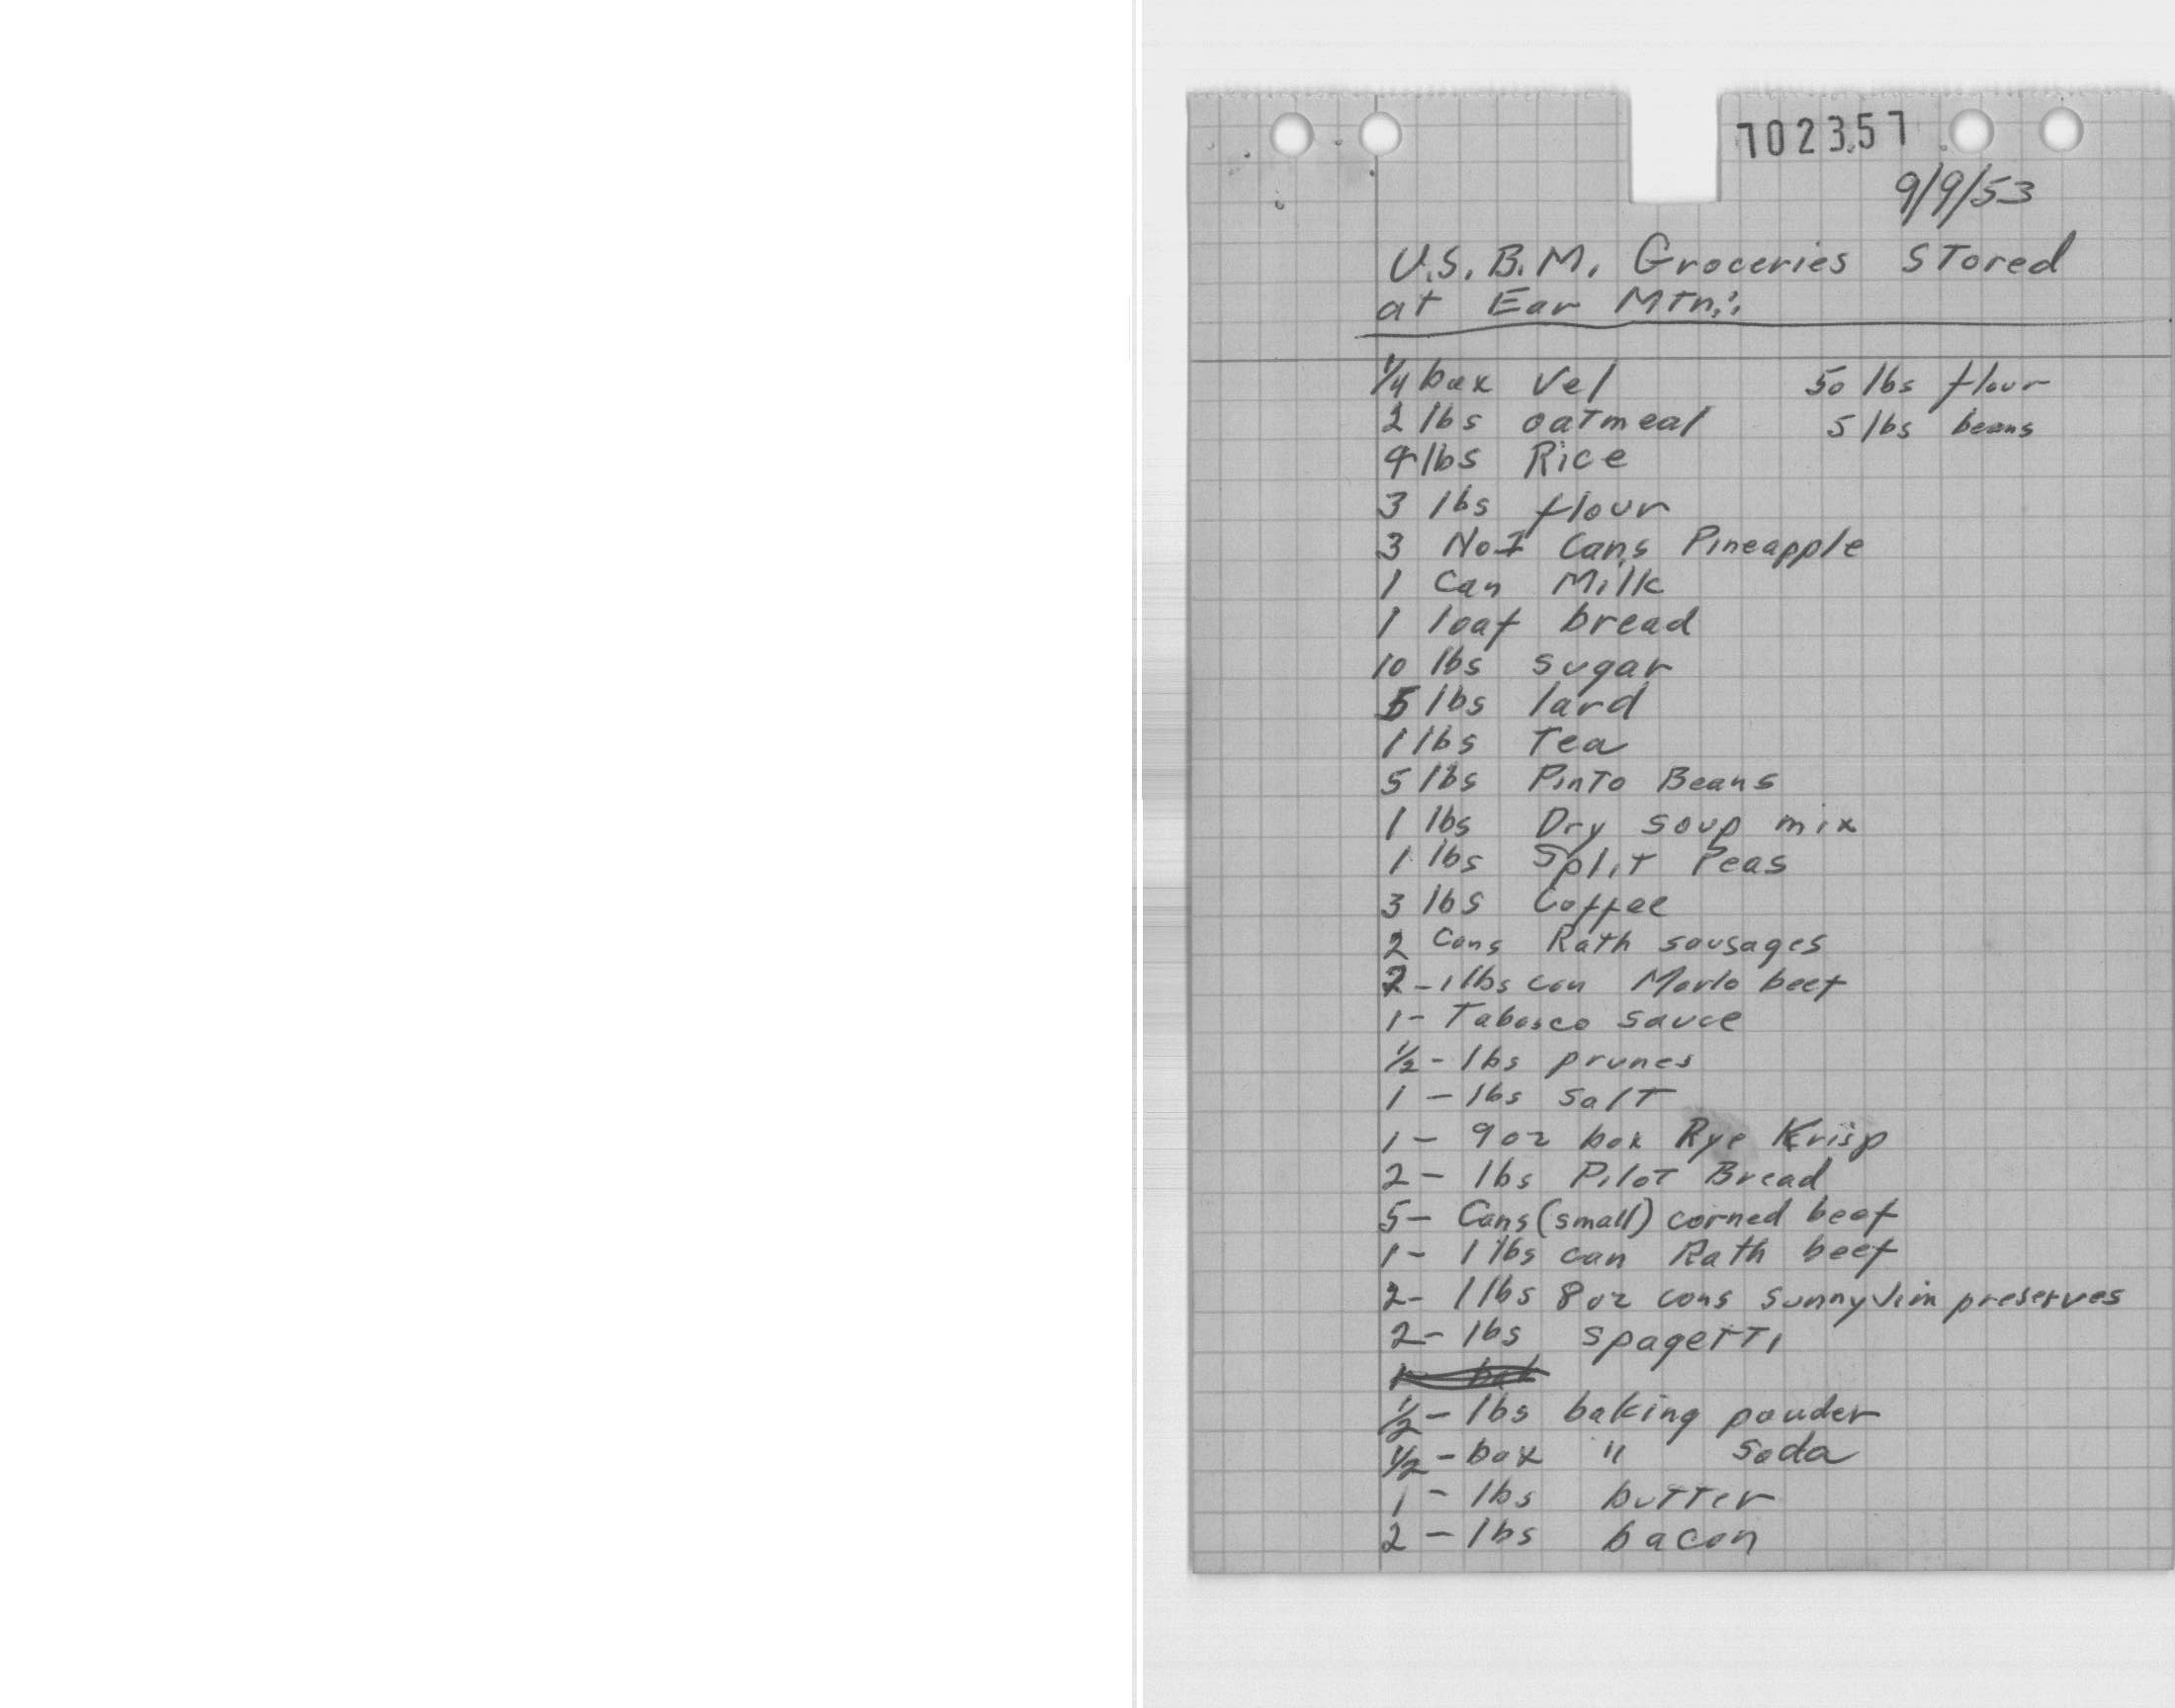 702357
9/9/53
U.S.B.M. Groceries Stored
at Ear Mtn.:
1/4 box Vel 50 lbs flour
2 lbs oatmeal 5 lbs beans
4 lbs Rice
3 lbs flour
3 No 1 Cans Pineapple
1 Can Milk
1 loaf bread
10 lbs sugar
5 lbs lard
1 lbs Tea
5 lbs Pinto Beans
1 lbs Dry soup mix
1 lbs Split Peas
3 lbs Coffee
2 Cans Rath sausages
2 - 1 lbs can Marlo beef
1 - Tabasco sauce
1/2 - lbs prunes
1 - lbs salt
1 - 9 oz box Rye Krisp
2 - lbs Pilot Bread
5 - Cans (small) corned beef
1 - 1 lbs can Rath beef
2 - 1 lbs 8 oz cans Sunny Jim preserves
2 - lbs spagetti
1/2 - lbs baking pouder
1/2 - box " soda
1 - lbs butter
2 - lbs bacon